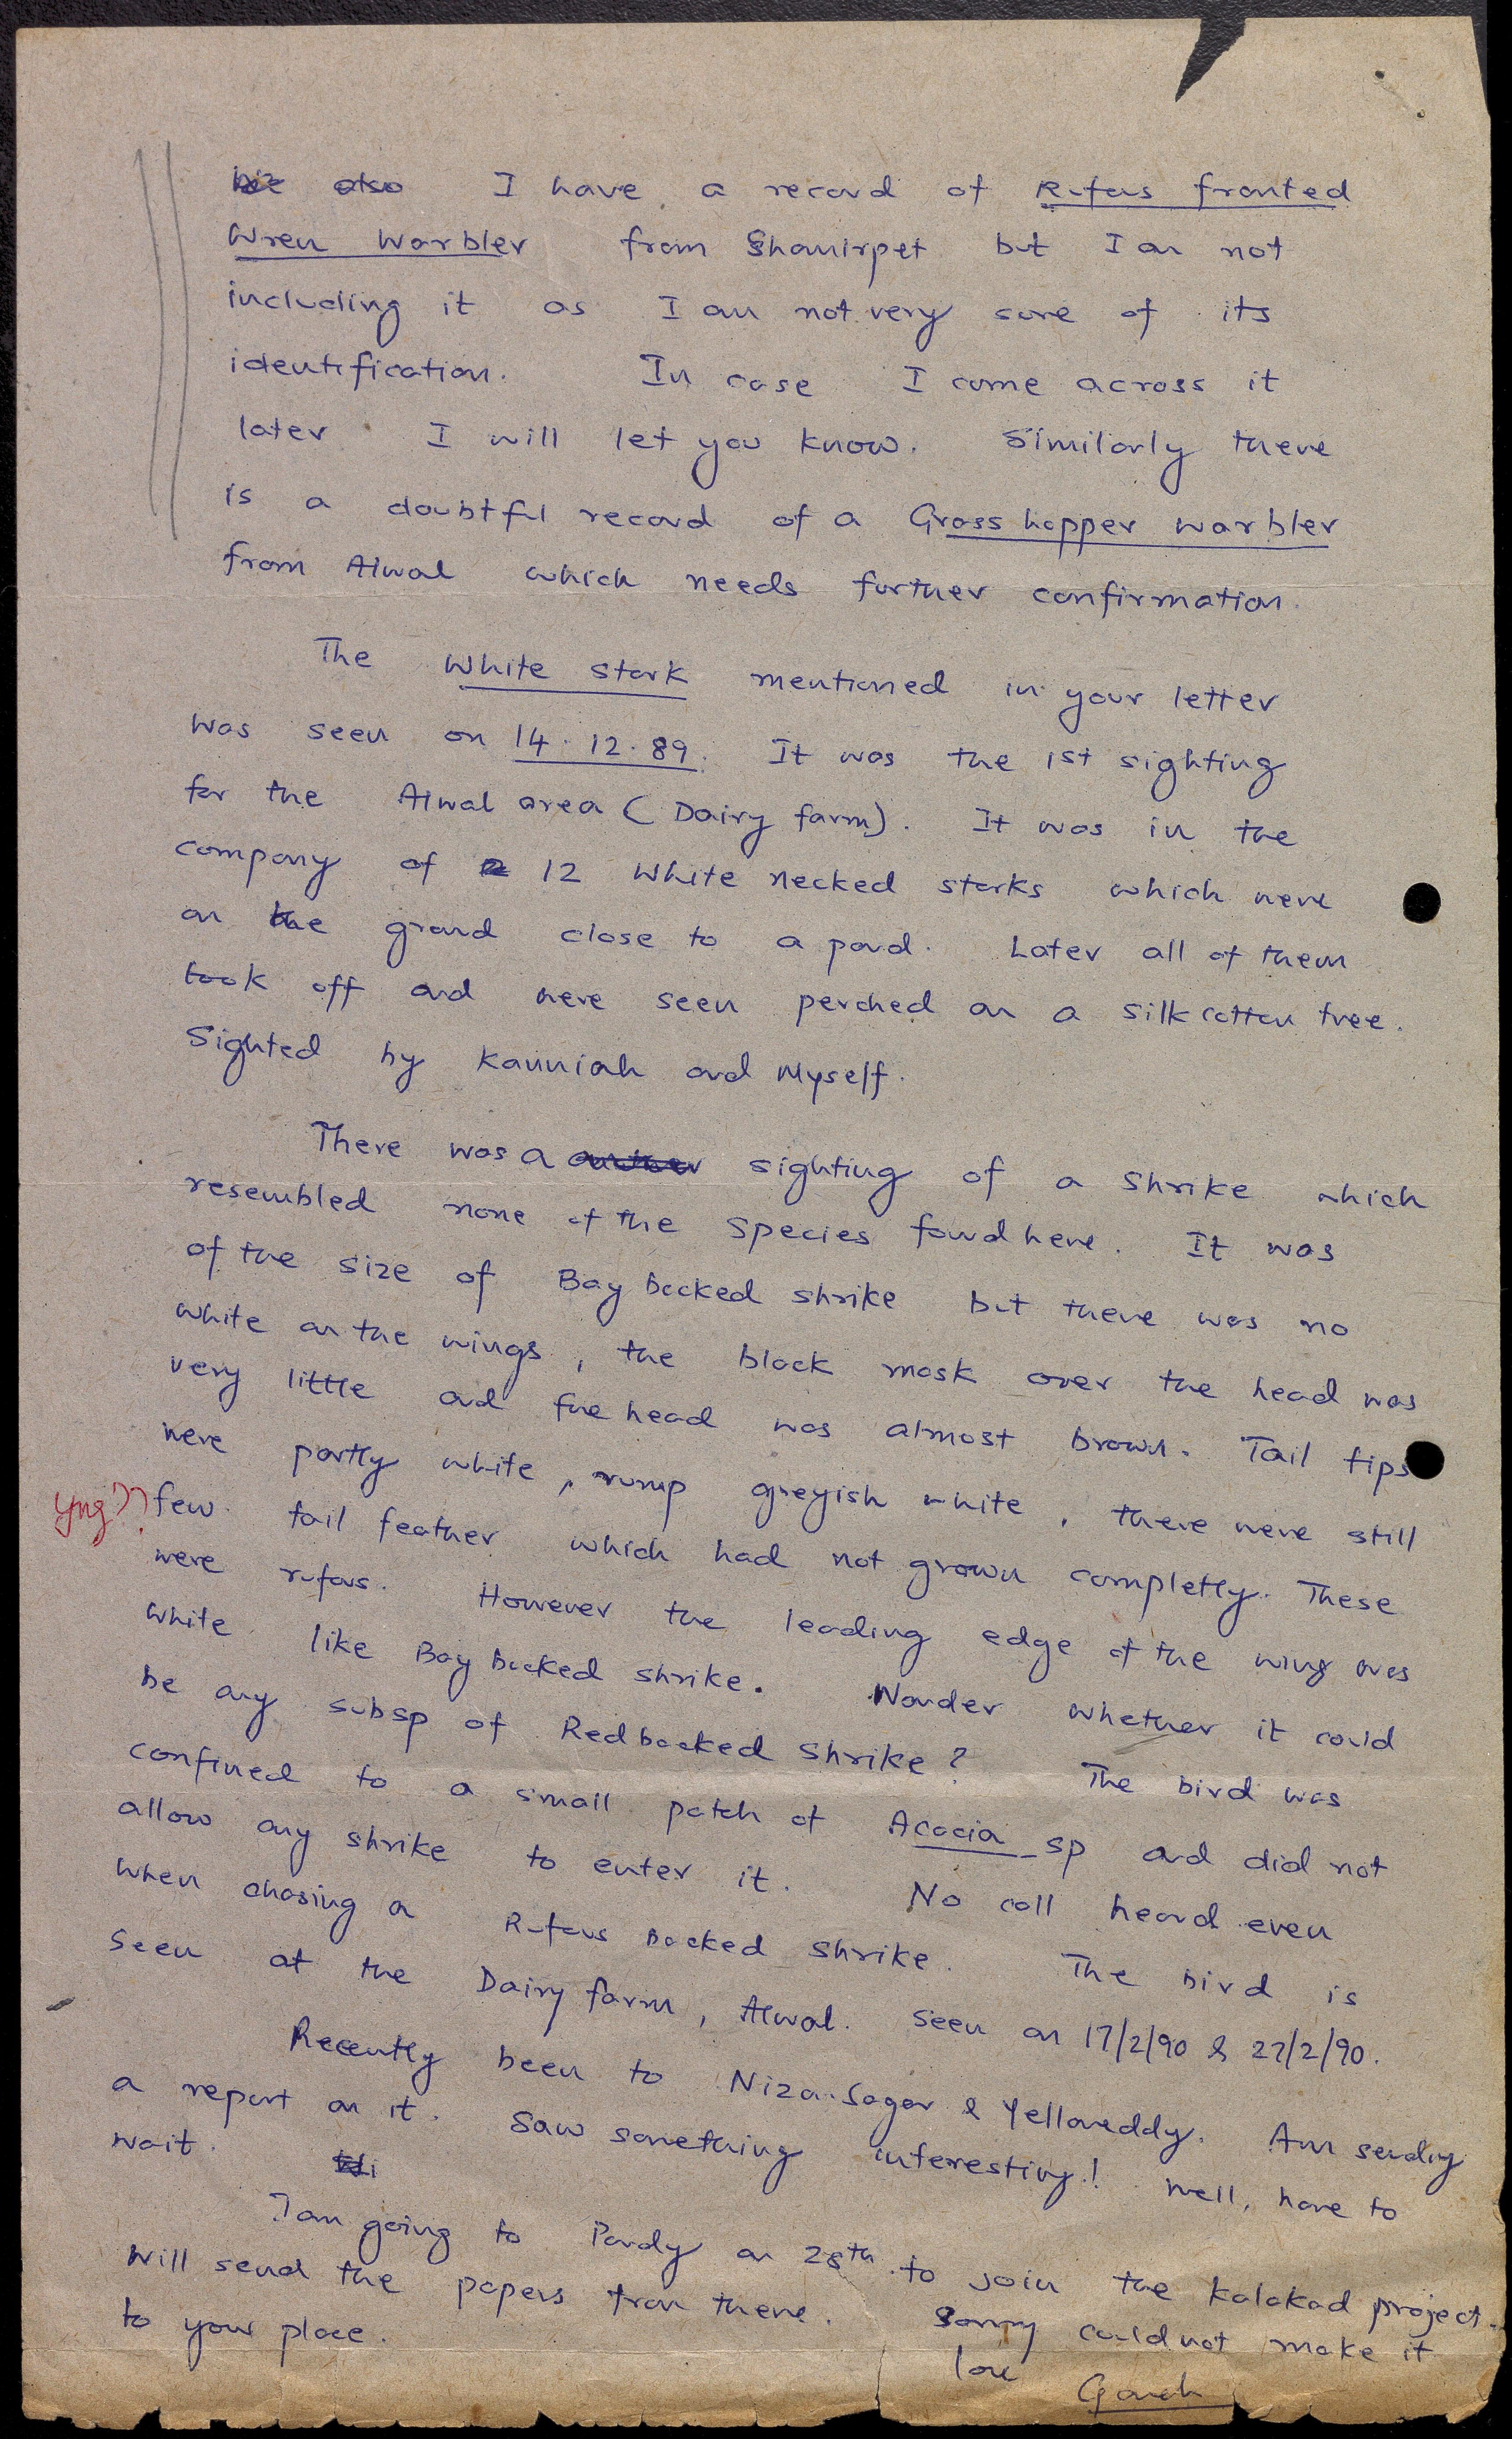 I have a record of Rufous fronted
Wren Warbler from Shamirpet but I am not
including it as I am not very sure of its
identification. In case I come across it
later I will let you know. Similarly there
is a doubtful record of a Grasshopper warbler
from Alwal which needs further confirmation.
The White stork mentioned in your letter
was seen on 14.12.89. It was the 1st sighting
for the Alwal area (Dairy farm). It was in the
company of 12 White necked storks which were
on the ground close to a pond. Later all of them
took off and were seen perched on a silk cotton tree.
Sighted by Kanniah and Myself.
There was a sighting of a shrike which
resembled none of the species found here. It was
of the size of Bay backed shrike but there was no
white on the wings, the black mask over the head was
very little and the head was almost brown. Tail tips
were partly white, rump greyish white, there were still
yng??
few tail feather which had not grown completly. These
were rufous. However the leading edge of the wing was
white like Bay backed shrike. Wonder whether it could
be any subsp of Redbacked shrike? The bird was
confined to a small patch of Acacia sp and did not
allow any shrike to enter it. No call heard even
when chasing a Rufous backed shrike. The bird is
seen at the Dairy farm, Alwal. Seen on 17/2/90 & 27/2/90.
Recently been to Nizamsagar & Yellareddy. Am sending
a report on it. Saw something interesting! Well, have to
wait.
I am going to Pondy on 28th to join the Kalakad project.
Will send the papers from there. Sorry could not make it
to your place.
love